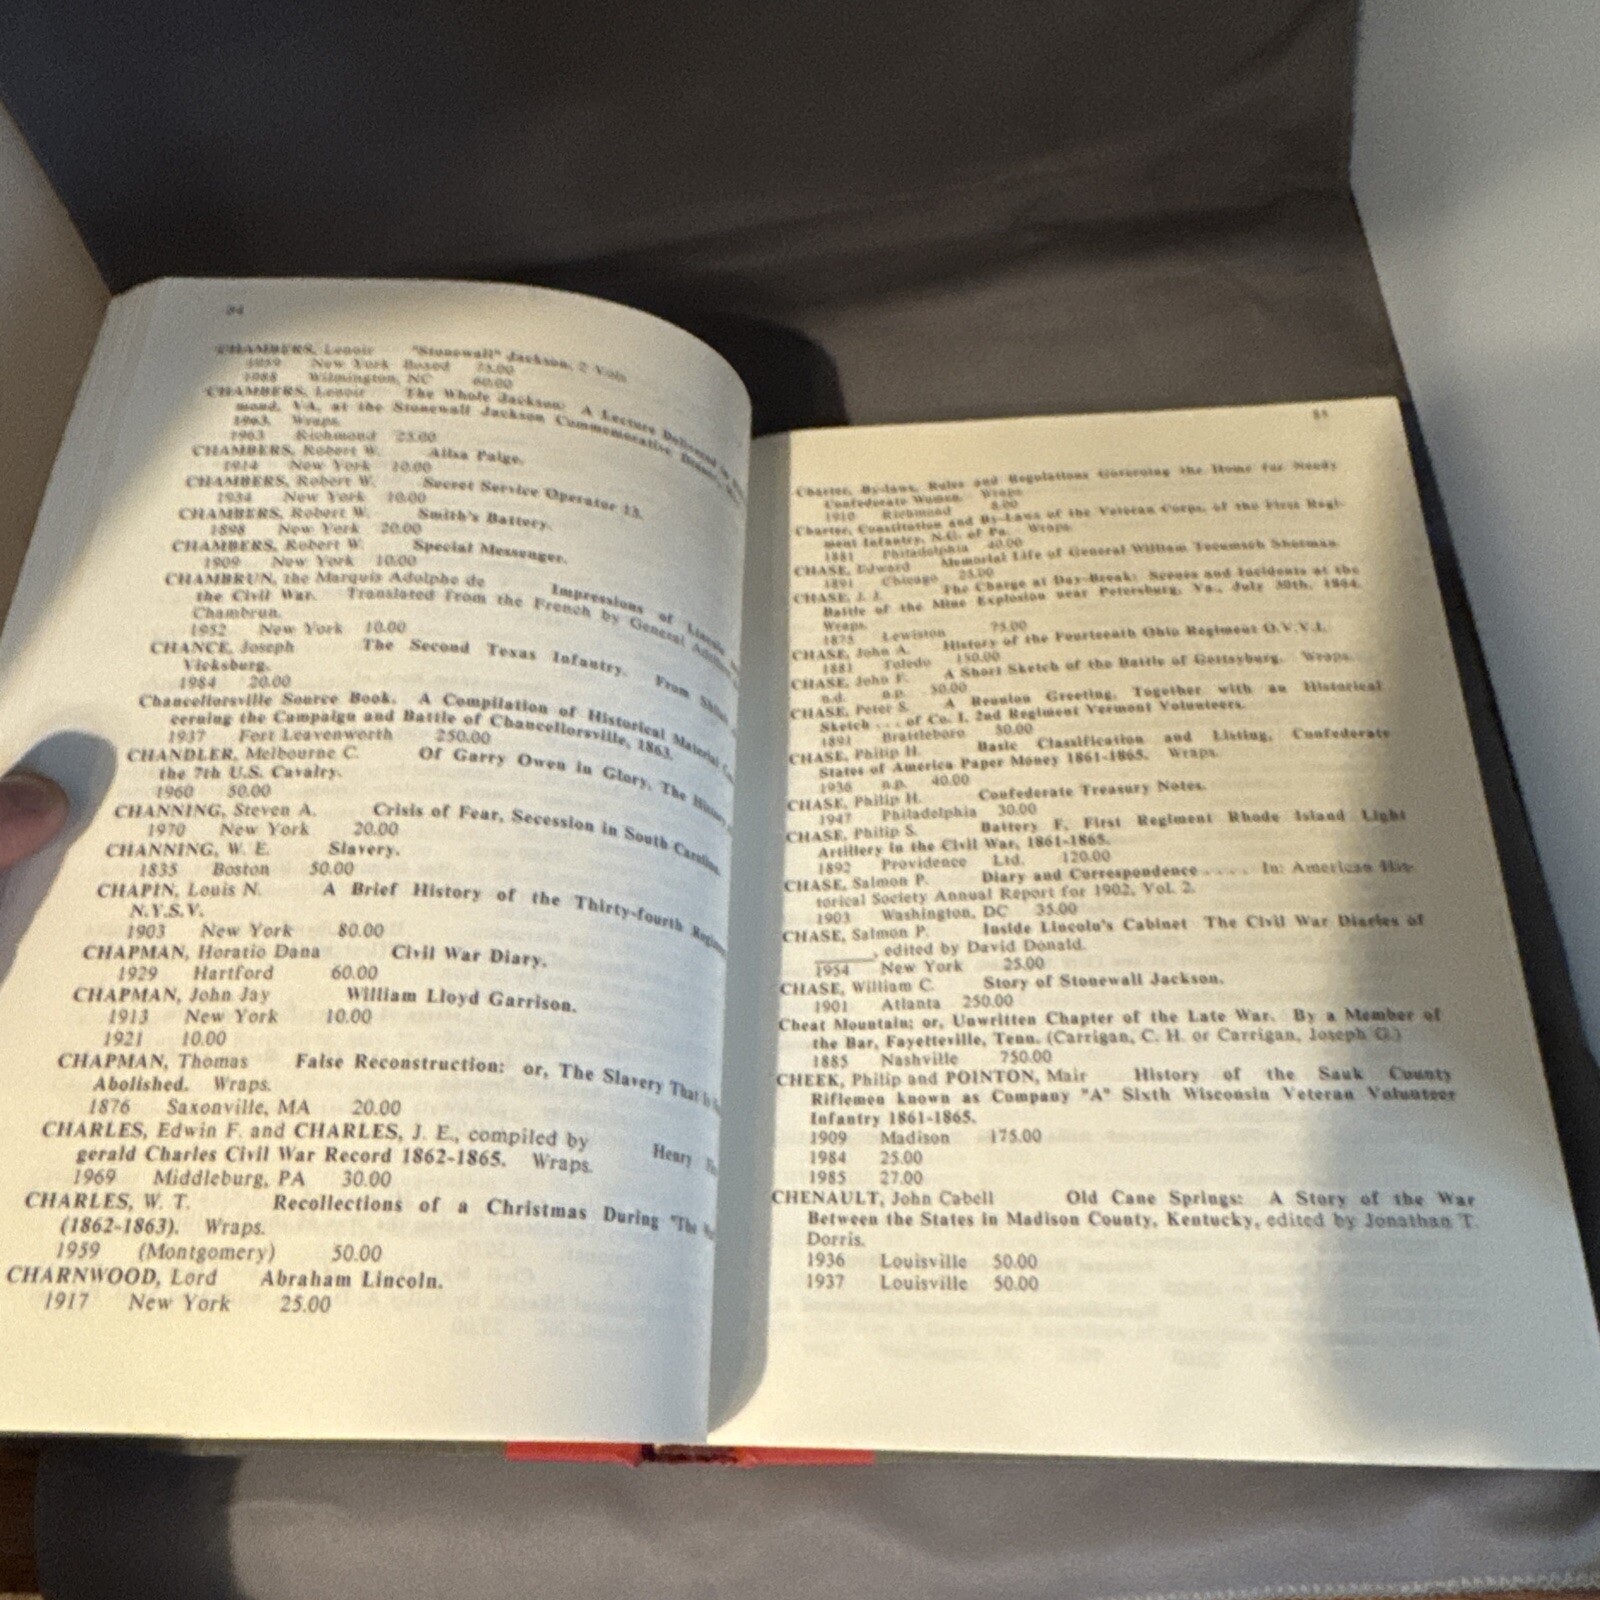 84
CHAMBERS, Lenoir "Stonewall" Jackson, 2 Vols
1959 New York Boxed 75.00
1988 Wilmington, NC 60.00
CHAMBERS, Lenoir The Whole Jackson: A Lecture Delivered
mond, VA, at the Stonewall Jackson Commemorative Dinner,
1963. Wraps.
1963 Richmond 25.00
CHAMBERS, Robert W. Ailsa Paige.
1914 New York 10.00
CHAMBERS, Robert W. Secret Service Operator 13.
1934 New York 10.00
CHAMBERS, Robert W. Smith's Battery.
1898 New York 20.00
CHAMBERS, Robert W. Special Messenger.
1909 New York 10.00
CHAMBRUN, the Marquis Adolphe de Impressions of Lincoln
the Civil War. Translated from the French by General
Chambrun.
1952 New York 10.00
CHANCE, Joseph The Second Texas Infantry. From Shiloh
Vicksburg.
1984 20.00
Chancellorsville Source Book. A Compilation of Historical Material
cerning the Campaign and Battle of Chancellorsville, 1863.
1937 Fort Leavenworth 250.00
CHANDLER, Melbourne C. Of Garry Owen in Glory, The History
the 7th U.S. Cavalry.
1960 50.00
CHANNING, Steven A. Crisis of Fear, Secession in South Carolina.
1970 New York 20.00
CHANNING, W. E. Slavery.
1835 Boston 50.00
CHAPIN, Louis N. A Brief History of the Thirty-fourth
N.Y.S.V.
1903 New York 80.00
CHAPMAN, Horatio Dana Civil War Diary.
1929 Hartford 60.00
CHAPMAN, John Jay William Lloyd Garrison.
1913 New York 10.00
1921 10.00
CHAPMAN, Thomas False Reconstruction: or, The Slavery That
Abolished. Wraps.
1876 Saxonville, MA 20.00
CHARLES, Edwin F. and CHARLES, J. E., compiled by Henry
gerald Charles Civil War Record 1862-1865. Wraps.
1969 Middleburg, PA 30.00
CHARLES, W. T. Recollections of a Christmas During "The
(1862-1863). Wraps.
1959 (Montgomery) 50.00
CHARNWOOD, Lord Abraham Lincoln.
1917 New York 25.00
85
Charter, By-laws, Rules and Regulations Governing the Home for Needy
Confederate Women. Wraps
1910 Richmond 8.00
Charter, Constitution and By-Laws of the Veteran Corps, of the First Regi-
ment Infantry, N.G. of Pa. Wraps.
1881 Philadelphia 40.00
CHASE, Edward Memorial Life of General William Tecumseh Sherman.
1891 Chicago 25.00
CHASE, J. J. The Charge at Day-Break: Scenes and Incidents at the
Battle of the Mine Explosion near Petersburg, Va., July 30th, 1864.
Wraps.
1875 Lewiston 75.00
CHASE, John A. History of the Fourteenth Ohio Regiment O.V.V.I.
1881 Toledo 150.00
CHASE, John F. A Short Sketch of the Battle of Gettsyburg. Wraps.
n.d. n.p. 50.00
CHASE, Peter S. A Reunion Greeting, Together with an Historical
Sketch . . . of Co. I, 2nd Regiment Vermont Volunteers.
1891 Brattleboro 50.00
CHASE, Philip H. Basic Classification and Listing, Confederate
States of America Paper Money 1861-1865. Wraps.
1936 n.p. 40.00
CHASE, Philip H. Confederate Treasury Notes.
1947 Philadelphia 30.00
CHASE, Philip S. Battery F, First Regiment Rhode Island Light
Artillery in the Civil War, 1861-1865.
1892 Providence Ltd. 120.00
CHASE, Salmon P. Diary and Correspondence . . . . In: American His-
torical Society Annual Report for 1902, Vol. 2.
1903 Washington, DC 35.00
CHASE, Salmon P. Inside Lincoln's Cabinet The Civil War Diaries of
______, edited by David Donald.
1954 New York 25.00
CHASE, William C. Story of Stonewall Jackson.
1901 Atlanta 250.00
Cheat Mountain; or, Unwritten Chapter of the Late War. By a Member of
the Bar, Fayetteville, Tenn. (Carrigan, C. H. or Carrigan, Joseph G.)
1885 Nashville 750.00
CHEEK, Philip and POINTON, Mair History of the Sauk County
Riflemen known as Company "A" Sixth Wisconsin Veteran Volunteer
Infantry 1861-1865.
1909 Madison 175.00
1984 25.00
1985 27.00
CHENAULT, John Cabell Old Cane Springs: A Story of the War
Between the States in Madison County, Kentucky, edited by Jonathan T.
Dorris.
1936 Louisville 50.00
1937 Louisville 50.00